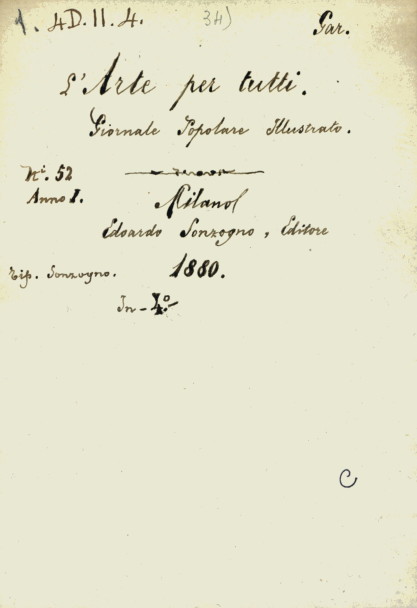 1. 4D.II.4. 34) Gar.
L'Arte per tutti.
Giornale Popolare Illustrato.
Ni. 52
Anno I.
Milano
Edoardo Sonzogno, Editore
Tip. Sonzogno. 1880.
In-4º-
C